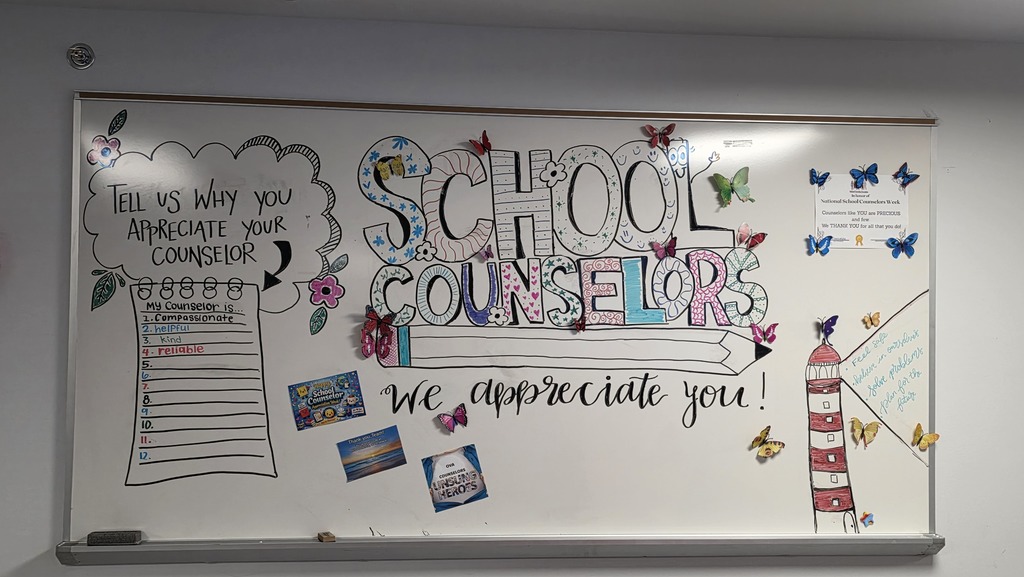 TELL US WHY YOU
APPRECIATE YOUR
COUNSELOR
My Counselor is...
1. Compassionate
2. helpful
3. Kind
4. reliable
5.
6.
7.
8.
9.
10.
11.
12.
SCHOOL
COUNSELORS
We appreciate you!
School
Counselor
Thank you Team!
OUR
COUNSELORS
UNSUNG
HEROES
National School Counselors Week
Counselors like YOU are PRECIOUS
and few
We THANK YOU for all that you do!
feel safe
believe in ourselves
solve problems
plan for the
future